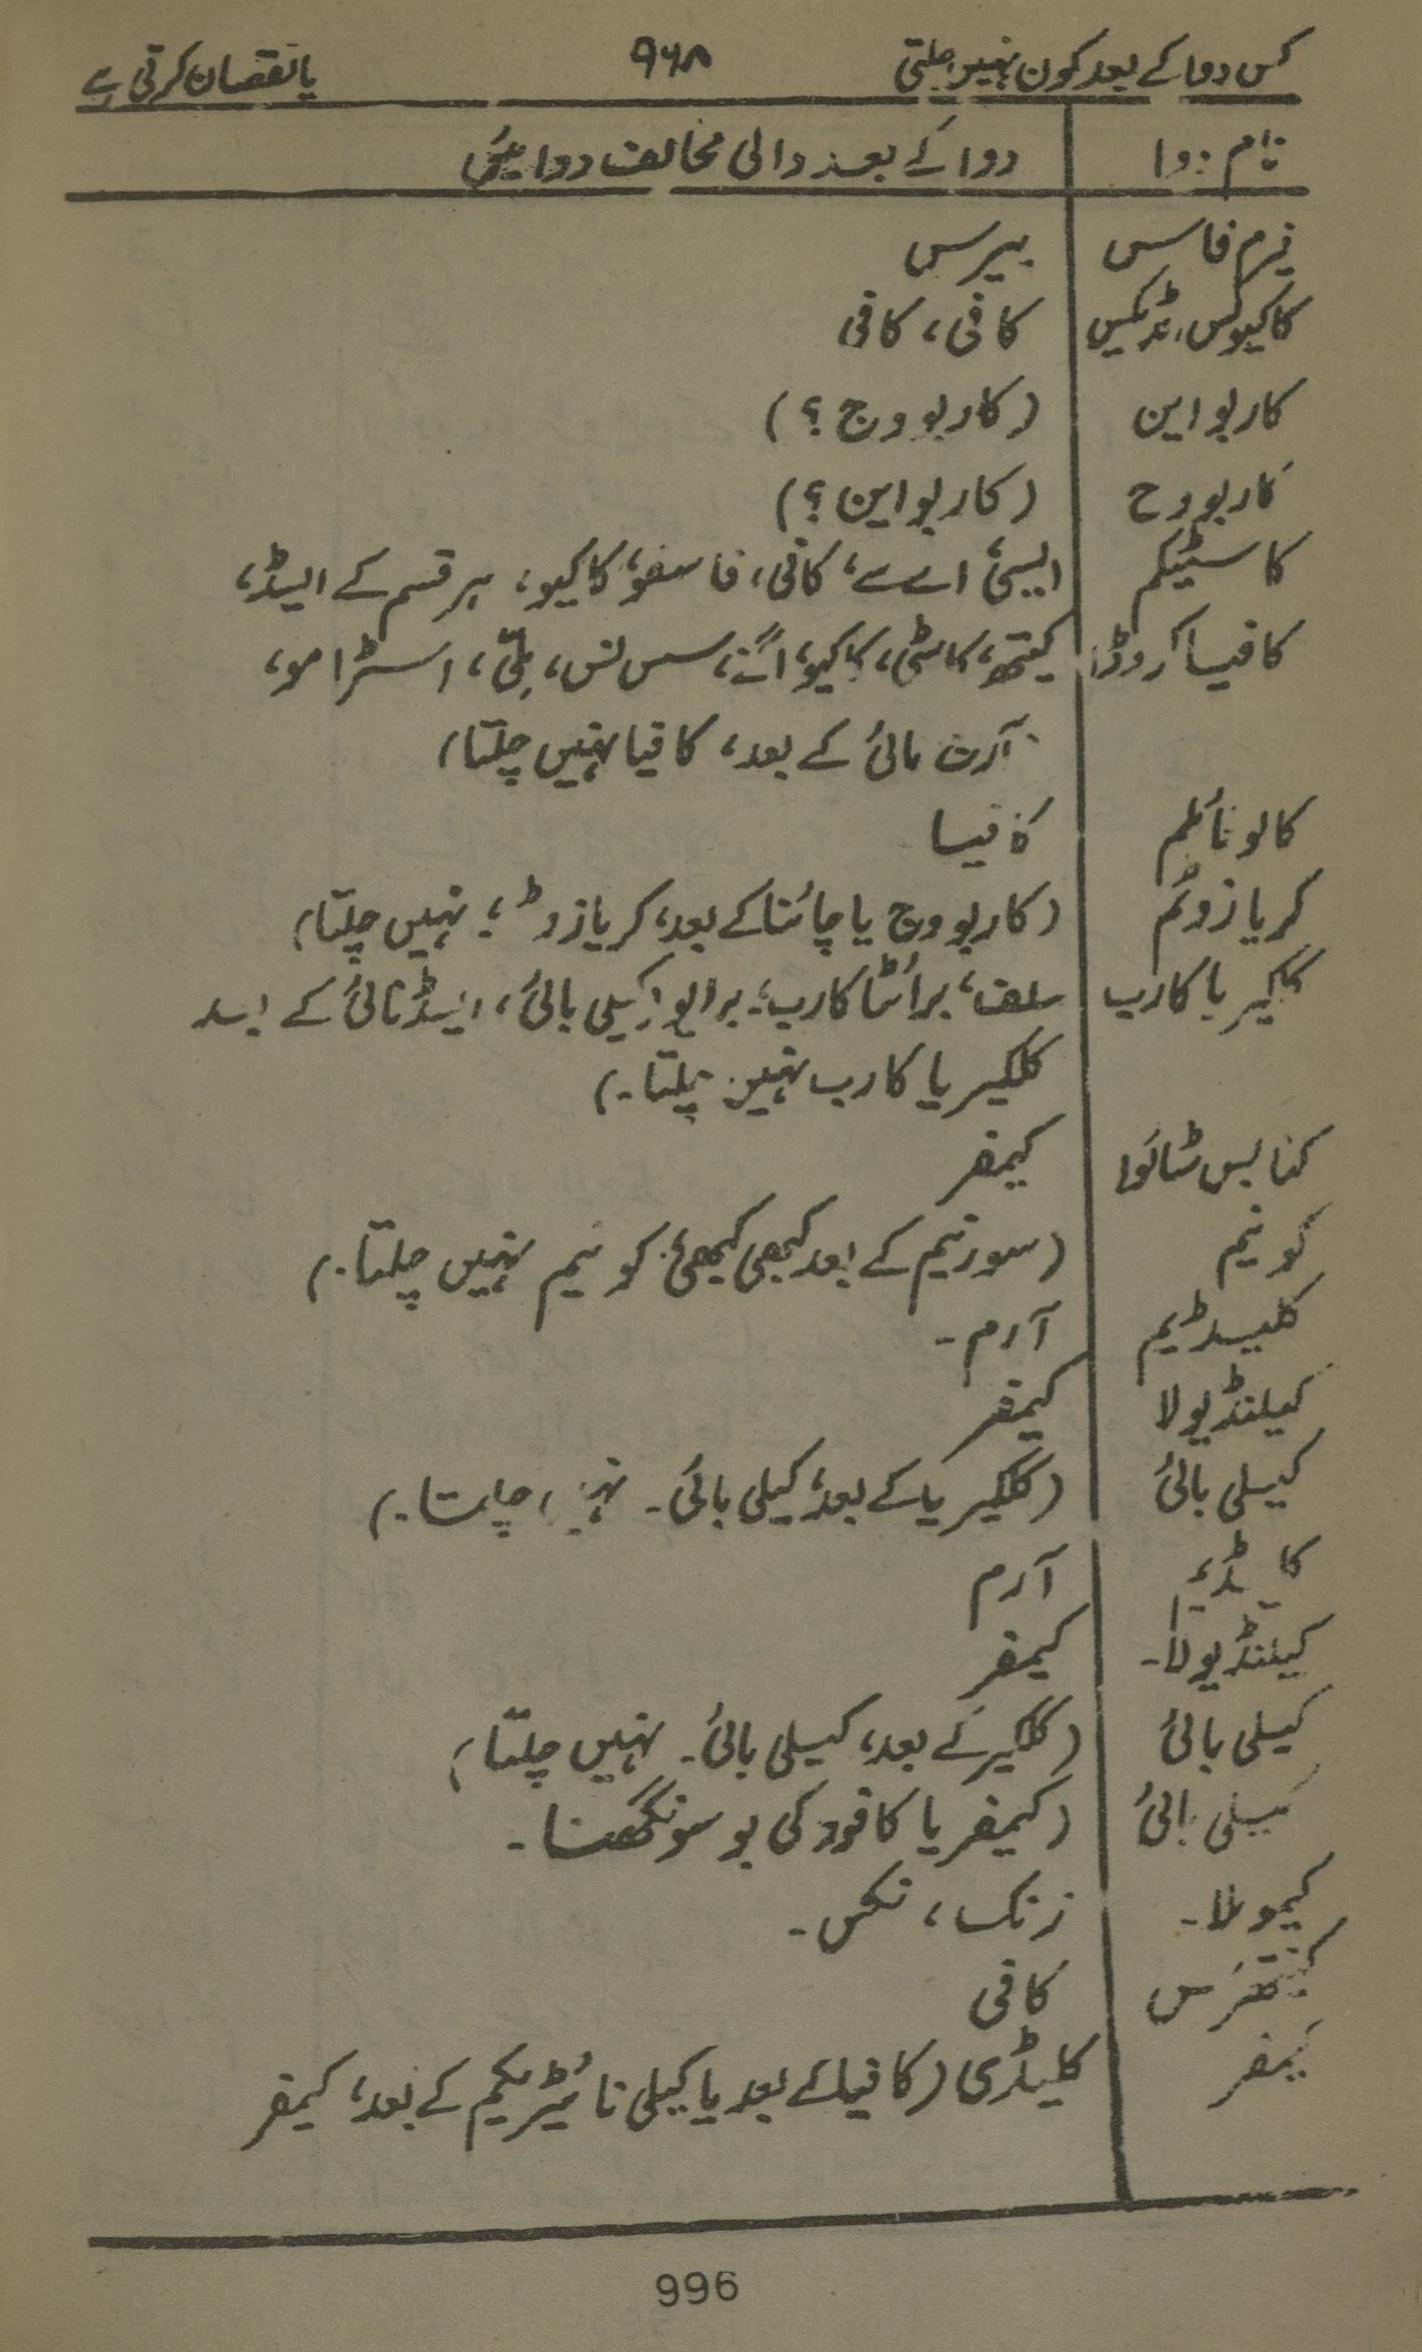 کس دوا کے بعد کون نہیں چلتی ۹۶۸ یا نقصان کرتی ہے
نام دوا دوا کے بعد والی مخالف دوائیں
فیرم فاس بیرس
کاکیوکس، کافی، کافی
کاربو این (کاربو وج ؟)
کاربو وج (کاربو این ؟)
کاسٹیکم ایسی اے سے، کافی، فاسفو، کاکیو، ہر قسم کے ایسڈ،
کافیا کروڈا کینتھر، کاسٹی، کاکیو، اگنے، سس لس، ملی، اسٹرامو،
آرٹ مائی کے بعد، کافیا نہیں چلتا)
کالونائلم کافیا
کریازوٹم (کاربو وج یا چائنا کے بعد، کریازوٹ، نہیں چلتا)
کلکیریا کارب سلف، برائٹا کارب، کیلی بائی، ایسڈ نائی کے بعد
کلکیریا کارب نہیں چلتا۔)
کنابس ٹائوا کیمفر
کونیم (سورنیم کے بعد کبھی کبھی کونیم نہیں چلتا۔)
کلیسڈیم آرم۔
کیلنڈیولا کیمفر
کیلی بائی (کلکیریا کے بعد، کیلی بائی۔ نہیں چلتا۔)
آرم
کیلنڈیولا۔ کیمفر
کیلی بائی (کلکیر کے بعد، کیلی بائی۔ نہیں چلتا)
کیلی بائی (کیمفر یا کافور کی بو سونگھنا۔
کیموملا۔ زنک، نکس۔
کینتھرس کافی
کیمفر کلیڈی (کافیا کے بعد یا کیلی نائیٹریکم کے بعد، کیمفر
996